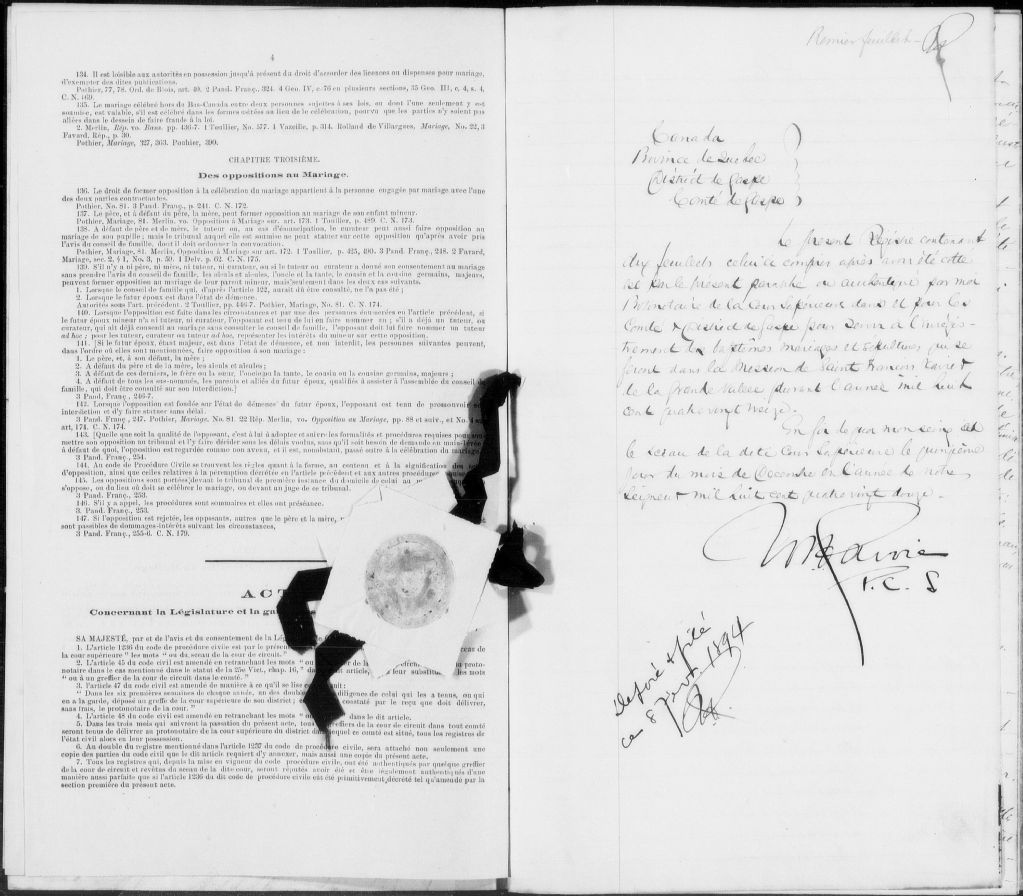 4
134. Il est loisible aux autorités en possession jusqu'à présent du droit d'accorder des licences ou dispenses pour mariage,
d'exempter des dites publications.
Pothier, 77, 78. Ord. de Blois, art. 40. 2 Pand. Franç., 324. 4 Geo. IV, c. 76 en plusieurs sections, 35 Geo. III, c. 4, s. 4,
C. N. 169.
135. Le mariage célébré hors du Bas-Canada entre deux personnes sujettes à ses lois, ou dont l'une seulement y est
soumise, est valable, s'il est célébré dans les formes usitées au lieu de la célébration, pourvu que les parties n'y soient pas
allées dans le dessein de faire fraude à la loi.
2. Merlin, Rép. vo. Bans. pp. 436-7. 1 Toullier, No. 577. 1 Vazeille, p. 314. Rolland de Villargues, Mariage, No. 22, 3
Favard. Rép., p. 30.
Pothier, Mariage, 327, 363. Pouhier, 390.
CHAPITRE TROISIÈME.
Des oppositions au Mariage.
136. Le droit de former opposition à la célébration du mariage appartient à la personne engagée par mariage avec l'une
des deux parties contractantes.
Pothier, No. 81. 3 Pand. Franç., p. 241. C. N. 172.
137. Le père, et à défaut du père, la mère, peut former opposition au mariage de son enfant mineur.
Pothier, Mariage, 81. Merlin, vo. Opposition à Mariage sur. art. 173. 1 Toullier, p. 489. C. N. 173.
138. A défaut de père et de mère, le tuteur ou, au cas d'émancipation, le curateur peut aussi faire opposition au
mariage de son pupille; mais le tribunal auquel elle est soumise ne peut statuer sur cette opposition qu'après avoir pris
l'avis du conseil de famille, dont il doit ordonner la convocation.
Pothier, Mariage, 81. Merlin, Opposition à Mariage sur art. 172. 1 Toullier, p. 425, 490. 3 Pand. Franç., 248. 2 Favard,
Mariage, sec. 2, § 1, No. 3, p. 59. 1 Delv. p. 62. C. N. 175.
139. S'il n'y a ni père, ni mère, ni tuteur, ni curateur, ou si le tuteur ou curateur a donné son consentement au mariage
sans prendre l'avis du conseil de famille, les aïeuls et aïeules, l'oncle et la tante, le cousin et la cousine germains, majeurs,
peuvent former opposition au mariage de leur parent mineur, mais seulement dans les deux cas suivants.
1. Lorsque le conseil de famille qui, d'après l'article 122, aurait dû être consulté, ne l'a pas été ;
2. Lorsque le futur époux est dans l'état de démence.
Autorités sous l'art. précédent. 2 Toullier, pp. 446-7. Pothier, Mariage, No. 81. C. N. 174.
140. Lorsque l'opposition est faite dans les circonstances et par une des personnes énumérées en l'article précédent, si
le futur époux mineur n'a ni tuteur, ni curateur, l'opposant est tenu de lui en faire nommer un ; s'il a déjà un tuteur, ou
curateur, qui ait déjà consenti au mariage sans consulter le conseil de famille, l'opposant doit lui faire nommer un tuteur
ad hoc ; pour les tuteur, curateur ou tuteur ad hoc, représenter les intérêts du mineur sur cette opposition.
141. [Si le futur époux, étant majeur, est dans l'état de démence, et non interdit, les personnes suivantes peuvent,
dans l'ordre où elles sont mentionnées, faire opposition à son mariage :
1. Le père, et, à son défaut, la mère ;
2. A défaut du père et de la mère, les aïeuls et aïeules ;
3. A défaut de ces derniers, le frère ou la sœur, l'oncle ou la tante, le cousin ou la cousine germains, majeurs ;
4. A défaut de tous les sus-nommés, les parents et alliés du futur époux, qualifiés à assister à l'assemblée du conseil de
famille, qui doit être consulté sur son interdiction.]
3 Pand. Franç., 246-7.
142. Lorsque l'opposition est fondée sur l'état de démence du futur époux, l'opposant est tenu de promouvoir
interdiction et d'y faire statuer sans délai.
3 Pand. Franç., 247. Pothier, Mariage, No. 81. 22 Rép. Merlin, vo. Opposition au Mariage, pp. 88 et suiv., et No.
art, 174. C. N. 174.
143. [Quelle que soit la qualité de l'opposant, c'est à lui à adopter et suivre les formalités et procédures requises pour
mettre son opposition au tribunal et l'y faire décider sous les délais voulus, sans qu'il soit besoin de demande en main-levée
à défaut de quoi, l'opposition est regardée comme non avenue, et il est, nonobstant, passé outre à la célébration du mariage.
3 Pand. Franç., 254.
144. Au code de Procédure Civile se trouvent les règles quant à la forme, au contenu et à la signification des
d'opposition, ainsi que celles relatives à la péremption décrétée en l'article précédent et aux autres procédures
145. Les oppositions sont portées devant le tribunal de première instance du domicile de celui au
s'oppose, ou du lieu où doit se célébrer le mariage, ou devant un juge de ce tribunal.
3 Pand. Franç., 253.
146. S'il y a appel, les procédures sont sommaires et elles ont préséance.
3. Pand. Franç., 253.
147. Si l'opposition est rejetée, les opposants, autres que le père et la mère,
sont passibles de dommages-intérêts suivant les circonstances,
3 Pand. Franç., 255-6. C. N. 179.
ACT
Concernant la Législature et la
SA MAJESTÉ, par et de l'avis et du consentement de la
1. L'article 1236 du code de procédure civile est par le
la cour supérieure " les mots " ou du sceau de la cour de circuit."
2. L'article 45 du code civil est amendé en retranchant les mots "
notaire dans le cas mentionné dans le statut de la 25e Vict., chap. 16,"
" ou à un greffier de la cour de circuit dans le comté."
3. l'article 47 du code civil est amendé de manière à ce qu'il se lise
" Dans les six premières semaines de chaque année, un des doubles
en a la garde, déposé au greffe de la cour supérieure de son district ;
sans frais, le protonotaire de la cour."
4. L'article 48 du code civil est amendé en retranchant les mots " dans le dit article.
5. Dans les trois mois qui suivront la passation du présent acte, tous greffiers de la cour de circuit dans tout comté
seront tenus de délivrer au protonotaire de la cour supérieure du district dans lequel ce comté est situé, tous les registres de
l'état civil alors en leur possession.
6. Au double du registre mentionné dans l'article 1237 du code de procédure civile, sera attaché non seulement une
copie des parties du code civil que le dit article requiert d'y annexer, mais aussi une copie du présent acte.
7. Tous les registres qui, depuis la mise en vigueur du code procédure civile, ont été authentiqués par quelque greffier
de la cour de circuit et revêtus du sceau de la dite cour, seront réputés avoir été et être légalement authentiqués d'une
manière aussi parfaite que si l'article 1236 du dit code de procédure civile eût été primitivement décrété tel qu'amendé par la
section première du présent acte.
Premier feuillet
Canada
Province de Québec
District de Gaspé
Comté de Gaspé
Le présent Régistre contenant
dix feuillets celui-ci compris après avoir été cotté
est par le présent paraphé ou authentiqué par moi
Protonotaire de la Cour Supérieure dans et pour les
Comté & District de Gaspé pour servir à l'inrégis-
trement des baptêmes mariages et sépultures qui se
feront dans la Mission de Saint François Xavier
de la Grande Vallée durant l'année mil huit
cent quatre vingt treize.
En foi de quoi mon seing et
le sceau de la dite Cour Supérieure le quinzième
jour du mois de Décembre en l'année de notre
Seigneur mil huit cent quatre vingt douze.
P. C. S
Déposé & filé
ce 8 1894